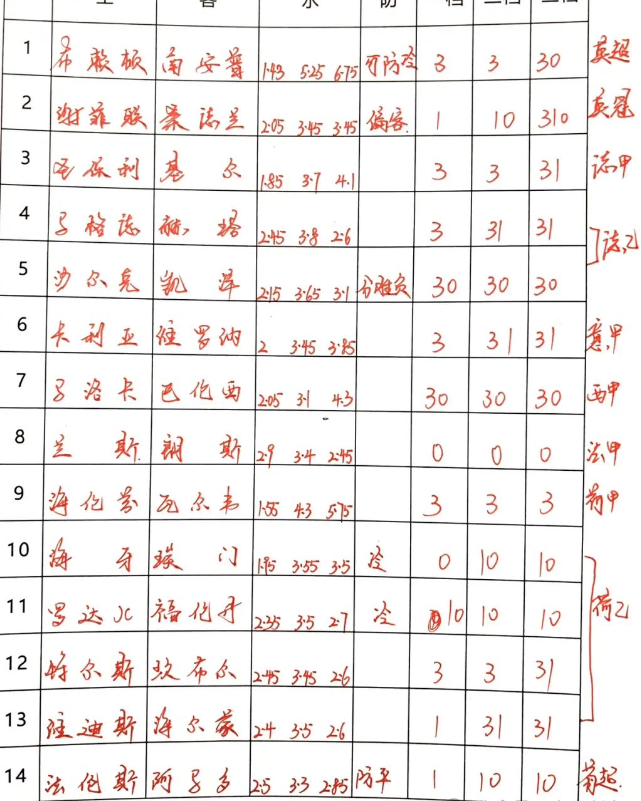 主 客 水 防 一档 二档 三档
1 布赖顿 南安普 1.43 5.25 6.75 可防冷 3 3 30 英超
2 谢菲联 桑德兰 2.05 3.45 3.45 偏客 1 10 310 英冠
3 圣保利 基尔 1.85 3.7 4.1 3 3 31 德甲
4 马格德 赫塔 2.45 3.8 2.6 3 31 31 德乙
5 沙尔克 凯泽 2.15 3.65 3.1 分难负 30 30 30
6 卡利亚 维罗纳 2 3.45 3.85 3 31 31 意甲
7 马洛卡 巴伦西 2.05 3.1 4.3 30 30 30 西甲
8 兰斯 朗斯 2.9 3.4 2.45 0 0 0 法甲
9 海伦芬 瓦尔韦 1.55 4.3 5.75 3 3 3 荷甲
10 海牙 埃门 1.95 3.55 3.5 冷 0 10 10
11 罗达JC 福伦丹 2.35 3.5 2.7 冷 10 10 10 荷乙
12 特尔斯 坎布尔 2.45 3.45 2.6 3 3 31
13 维迪斯 海尔蒙 2.4 3.5 2.6 1 31 31
14 法伦斯 阿马多 2.5 3.3 2.85 防平 1 10 10 葡超